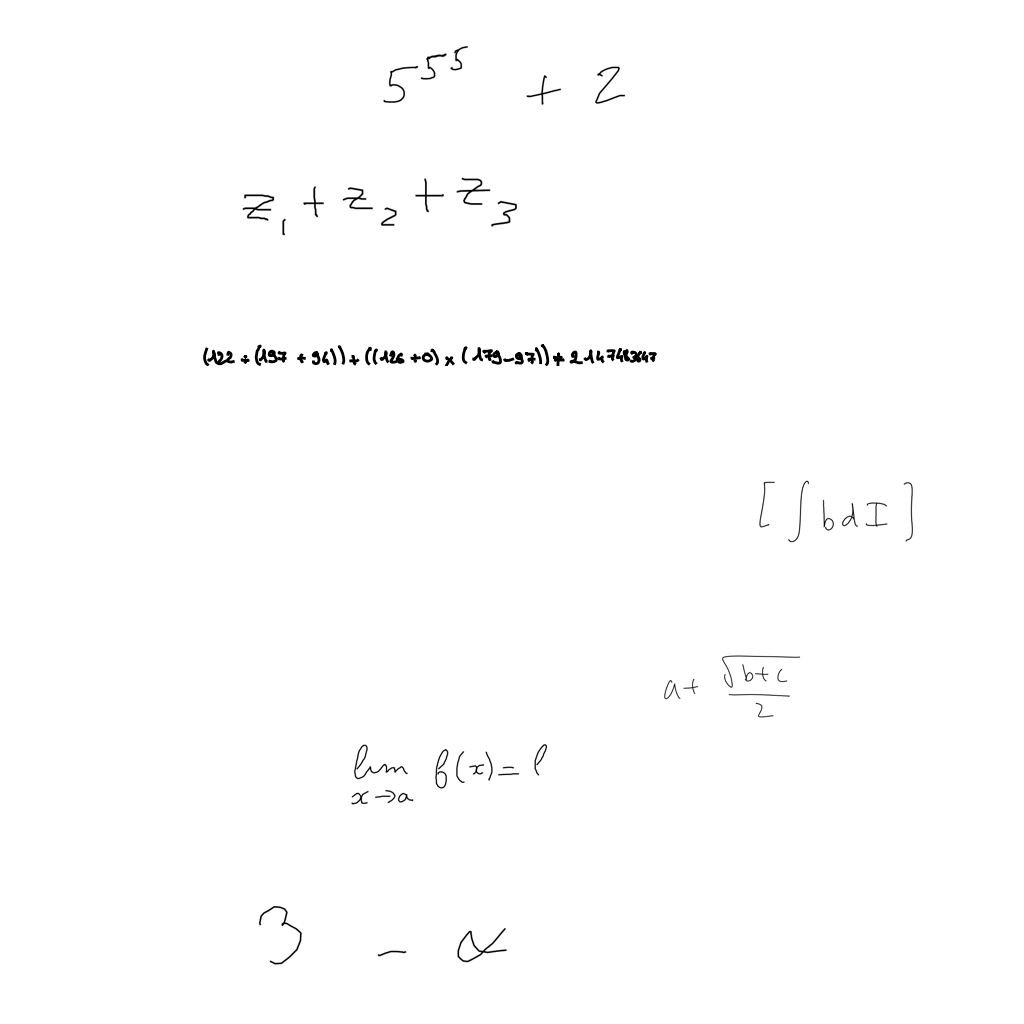 5^{5^5} + 2
z_1 + z_2 + z_3
(122 + (197 + 94)) + ((126 + 0) × (179 - 97)) + 2147483647
[∫ b d I]
a + \frac{\sqrt{b+c}}{2}
\lim_{x→a} f(x) = l
3 - α